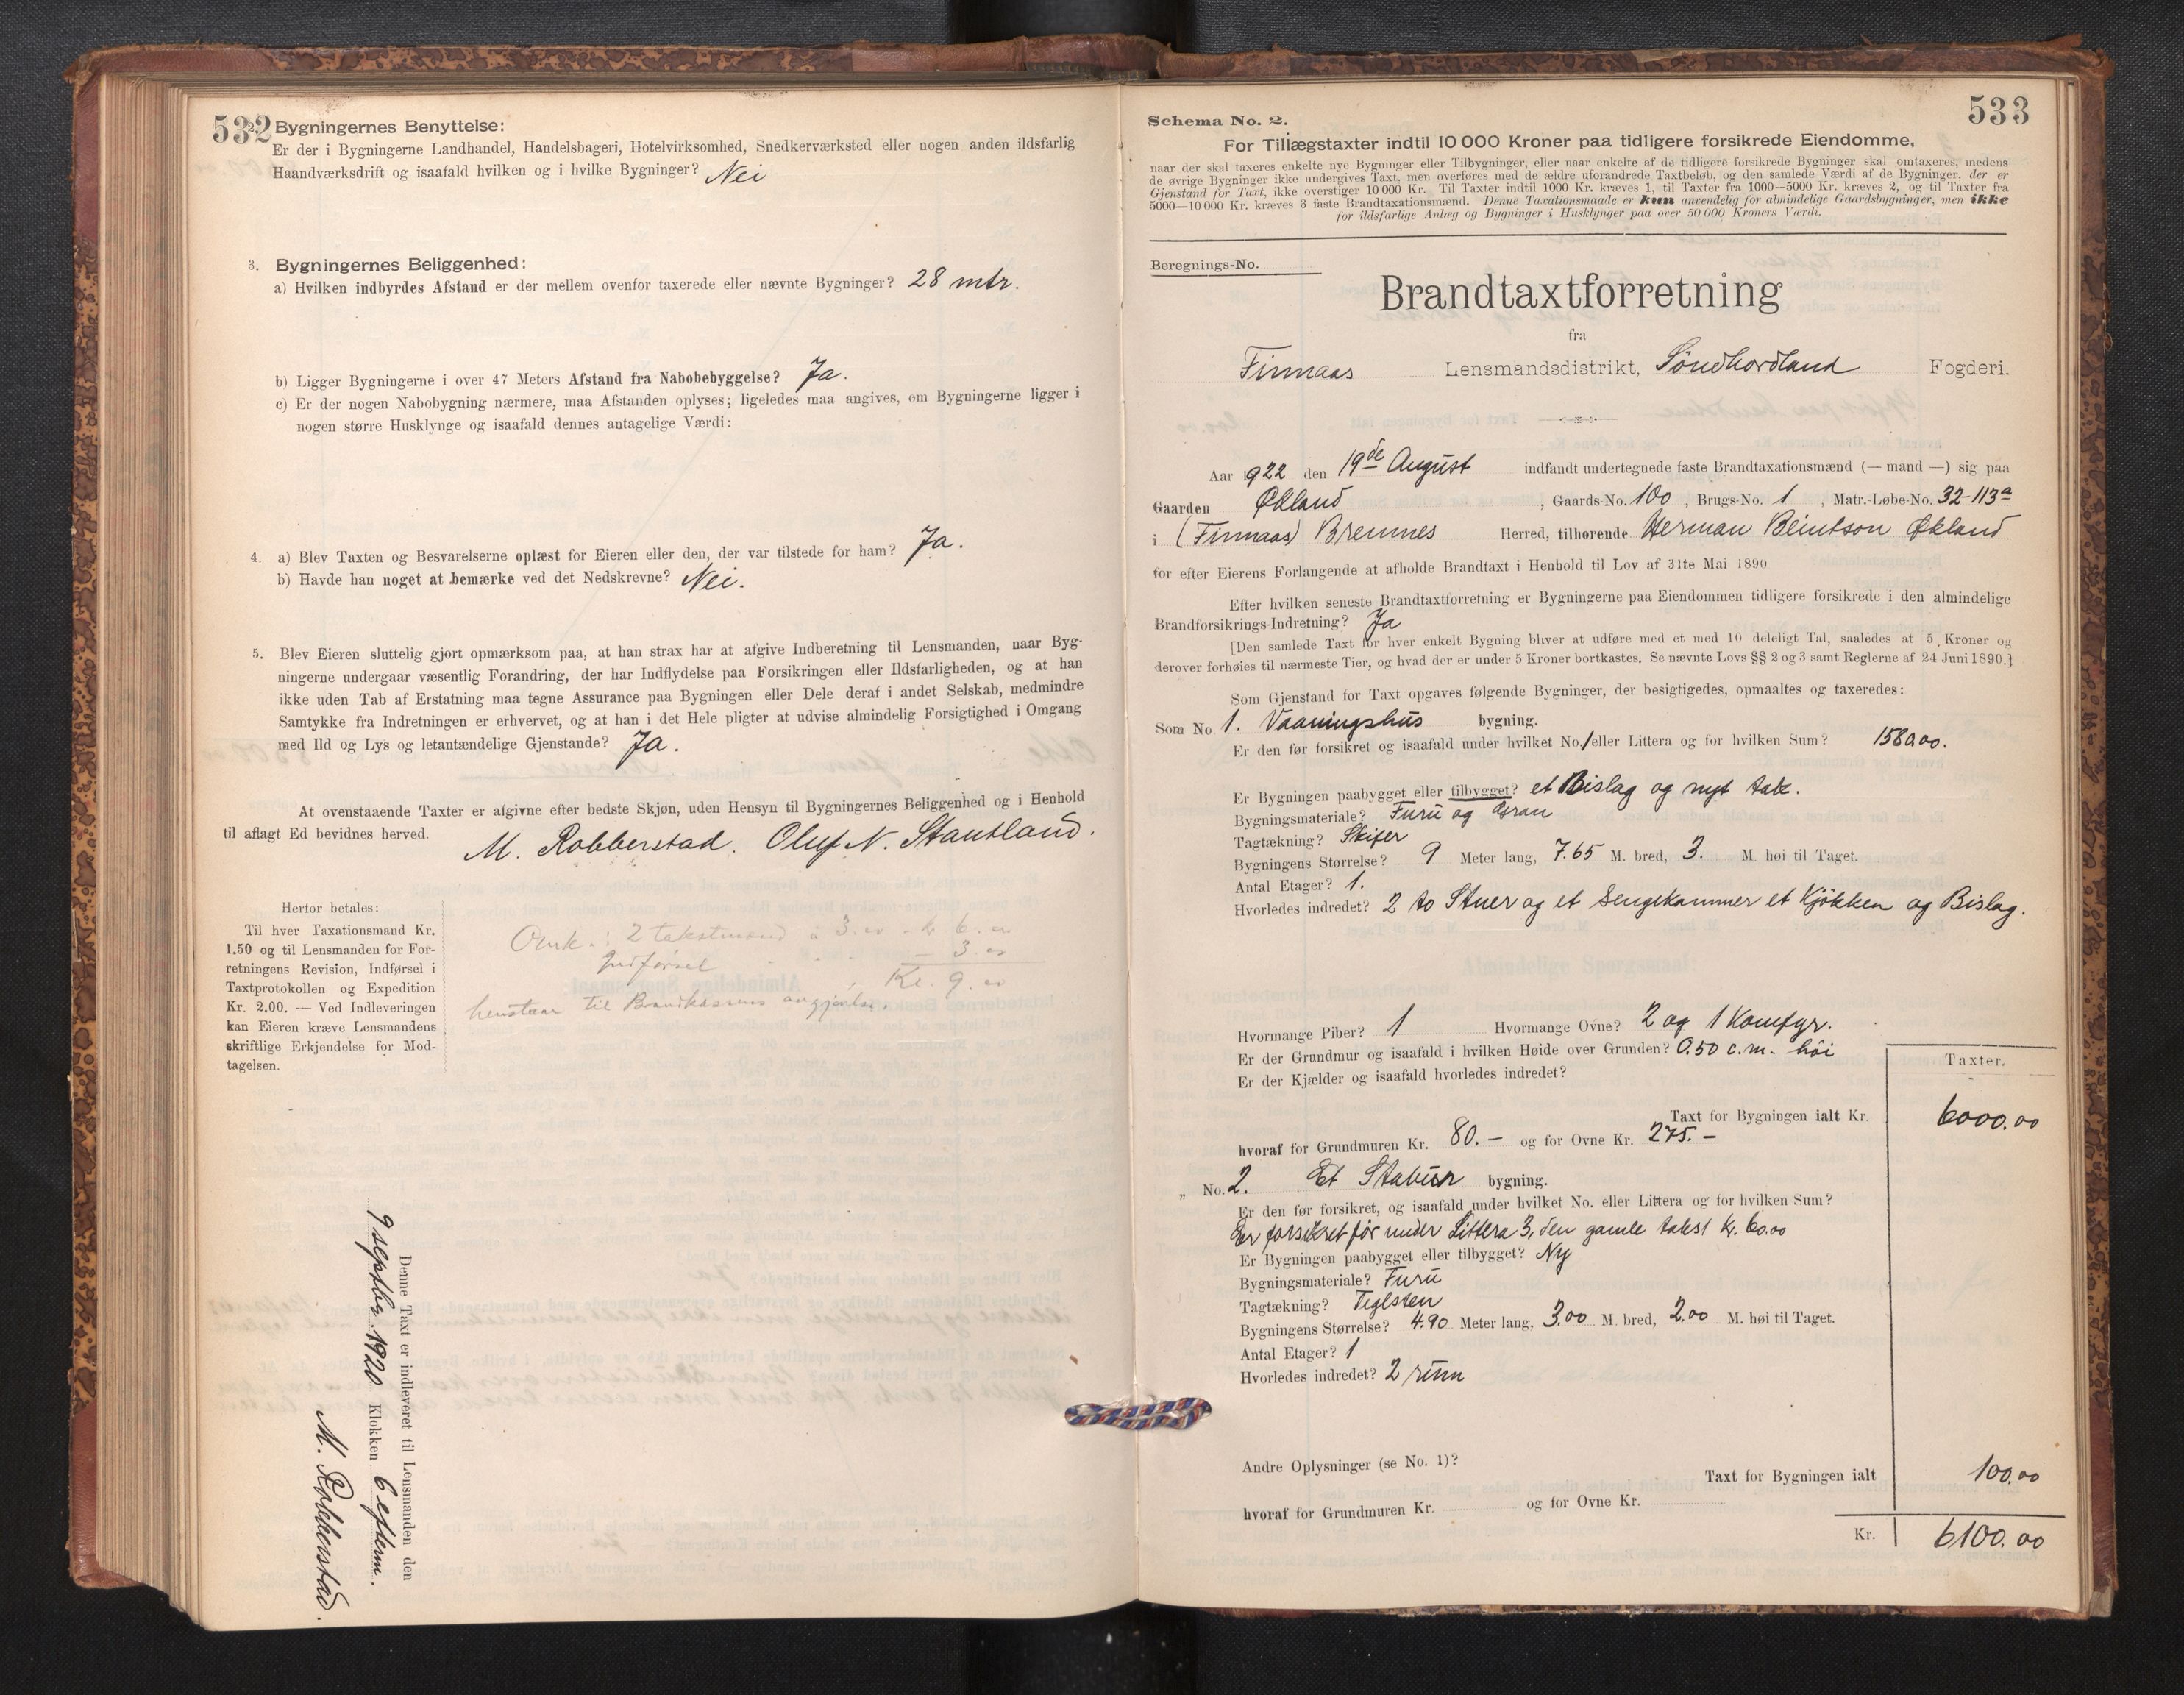 532
2. Bygningernes Benyttelse:
Er der i Bygningerne Landhandel, Handelsbageri, Hotelvirksomhed, Snedkerværksted eller nogen anden ildsfarlig
Haandværksdrift og isaafald hvilken og i hvilke Bygninger? Nei
3. Bygningernes Beliggenhed:
a) Hvilken indbyrdes Afstand er der mellem ovenfor taxerede eller nævnte Bygninger? 28 mtr.
b) Ligger Bygningerne i over 47 Meters Afstand fra Nabobebyggelse? Ja.
c) Er der nogen Nabobygning nærmere, maa Afstanden oplyses; ligeledes maa angives, om Bygningerne ligger i
nogen større Husklynge og isaafald dennes antagelige Værdi:
4. a) Blev Taxten og Besvarelserne oplæst for Eieren eller den, der var tilstede for ham? Ja.
b) Havde han noget at bemærke ved det Nedskrevne? Nei.
5. Blev Eieren sluttelig gjort opmærksom paa, at han strax har at afgive Indberetning til Lensmanden, naar Byg-
ningerne undergaar væsentlig Forandring, der har Indflydelse paa Forsikringen eller Ildsfarligheden, og at han
ikke uden Tab af Erstatning maa tegne Assurance paa Bygningen eller Dele deraf i andet Selskab, medmindre
Samtykke fra Indretningen er erhvervet, og at han i det Hele pligter at udvise almindelig Forsigtighed i Omgang
med Ild og Lys og letantændelige Gjenstande? Ja.
At ovenstaaende Taxter er afgivne efter bedste Skjøn, uden Hensyn til Bygningernes Beliggenhed og i Henhold
til aflagt Ed bevidnes herved.
M. Robberstad. Oluf N. Stautland.
Herfor betales:
Til hver Taxationsmand Kr.
1.50 og til Lensmanden for For-
retningens Revision, Indførsel i
Taxtprotokollen og Expedition
Kr. 2.00. — Ved Indleveringen
kan Eieren kræve Lensmandens
skriftlige Erkjendelse for Mod-
tagelsen.
Omk.: 2 takstmænd à 3.00 - kr 6.00
Indførsel - 3.00
Kr. 9.00
henstaar til Brandkassens avgjørelse.
Denne Taxt er indleveret til Lensmanden den
9 septbr. 1920 Klokken 6 efterm.
M. Robberstad.
533
Schema No. 2.
For Tillægstaxter indtil 10 000 Kroner paa tidligere forsikrede Eiendomme,
naar der skal taxeres enkelte nye Bygninger eller Tilbygninger, eller naar enkelte af de tidligere forsikrede Bygninger skal omtaxeres, medens
de øvrige Bygninger ikke undergives Taxt, men overføres med de ældre uforandrede Taxtbeløb, og den samlede Værdi af de Bygninger, der er
Gjenstand for Taxt, ikke overstiger 10 000 Kr. Til Taxter indtil 1000 Kr. kræves 1, til Taxter fra 1000—5000 Kr. kræves 2, og til Taxter fra
5000—10 000 Kr. kræves 3 faste Brandtaxationsmænd. Denne Taxationsmaade er kun anvendelig for almindelige Gaardsbygninger, men ikke
for ildsfarlige Anlæg og Bygninger i Husklynger paa over 50 000 Kroners Værdi.
Beregnings-No.
Brandtaxtforretning
fra
Finnaas Lensmandsdistrikt, Søndhordland Fogderi.
Aar 1922 den 19de August indfandt undertegnede faste Brandtaxationsmænd (— mand —) sig paa
Gaarden Økland, Gaards-No. 100, Brugs-No. 1, Matr.-Løbe-No. 32-113a
i (Finnaas) Bremnes Herred, tilhørende Herman Beintson Økland
for efter Eierens Forlangende at afholde Brandtaxt i Henhold til Lov af 31te Mai 1890
Efter hvilken seneste Brandtaxtforretning er Bygningerne paa Eiendommen tidligere forsikrede i den almindelige
Brandforsikrings-Indretning? Ja
[Den samlede Taxt for hver enkelt Bygning bliver at udføre med et med 10 deleligt Tal, saaledes at 5 Kroner og
derover forhøies til nærmeste Tier, og hvad der er under 5 Kroner bortkastes. Se nævnte Lovs §§ 2 og 3 samt Reglerne af 24 Juni 1890.]
Som Gjenstand for Taxt opgaves følgende Bygninger, der besigtigedes, opmaaltes og taxeredes:
Som No. 1. Vaaningshus bygning.
Er den før forsikret og isaafald under hvilket No. 1 eller Littera og for hvilken Sum? 1580.00.
Er Bygningen paabygget eller tilbygget? et Bislag og nyt tak.
Bygningsmateriale? Furu og Gran
Tagtækning? Skifer
Bygningens Størrelse? 9 Meter lang, 7.65 M. bred, 3. M. høi til Taget.
Antal Etager? 1.
Hvorledes indredet? 2 to Stuer og et Sengekammer et Kjøkken og Bislag.
Hvormange Piber? 1 Hvormange Ovne? 2 og 1 Komfyr.
Er der Grundmur og isaafald i hvilken Høide over Grunden? 0.50 c.m. høi
Er der Kjælder og isaafald hvorledes indredet?
Taxter.
Taxt for Bygningen ialt Kr. 6000.00
hvoraf for Grundmuren Kr. 80.- og for Ovne Kr. 275.-
„ No. 2. Et Stabur bygning.
Er den før forsikret, og isaafald under hvilket No. eller Littera og for hvilken Sum?
Er forsikret før under Littera 3, den gamle takst kr. 60.00
Er Bygningen paabygget eller tilbygget? Ny
Bygningsmateriale? Furu
Tagtækning? Teglsten
Bygningens Størrelse? 4.90 Meter lang, 3.00 M. bred, 2.00 M. høi til Taget.
Antal Etager? 1
Hvorledes indredet? 2 rum
Andre Oplysninger (se No. 1)?
Taxt for Bygningen ialt 100.00
hvoraf for Grundmuren Kr. og for Ovne Kr.
Kr. 6100.00